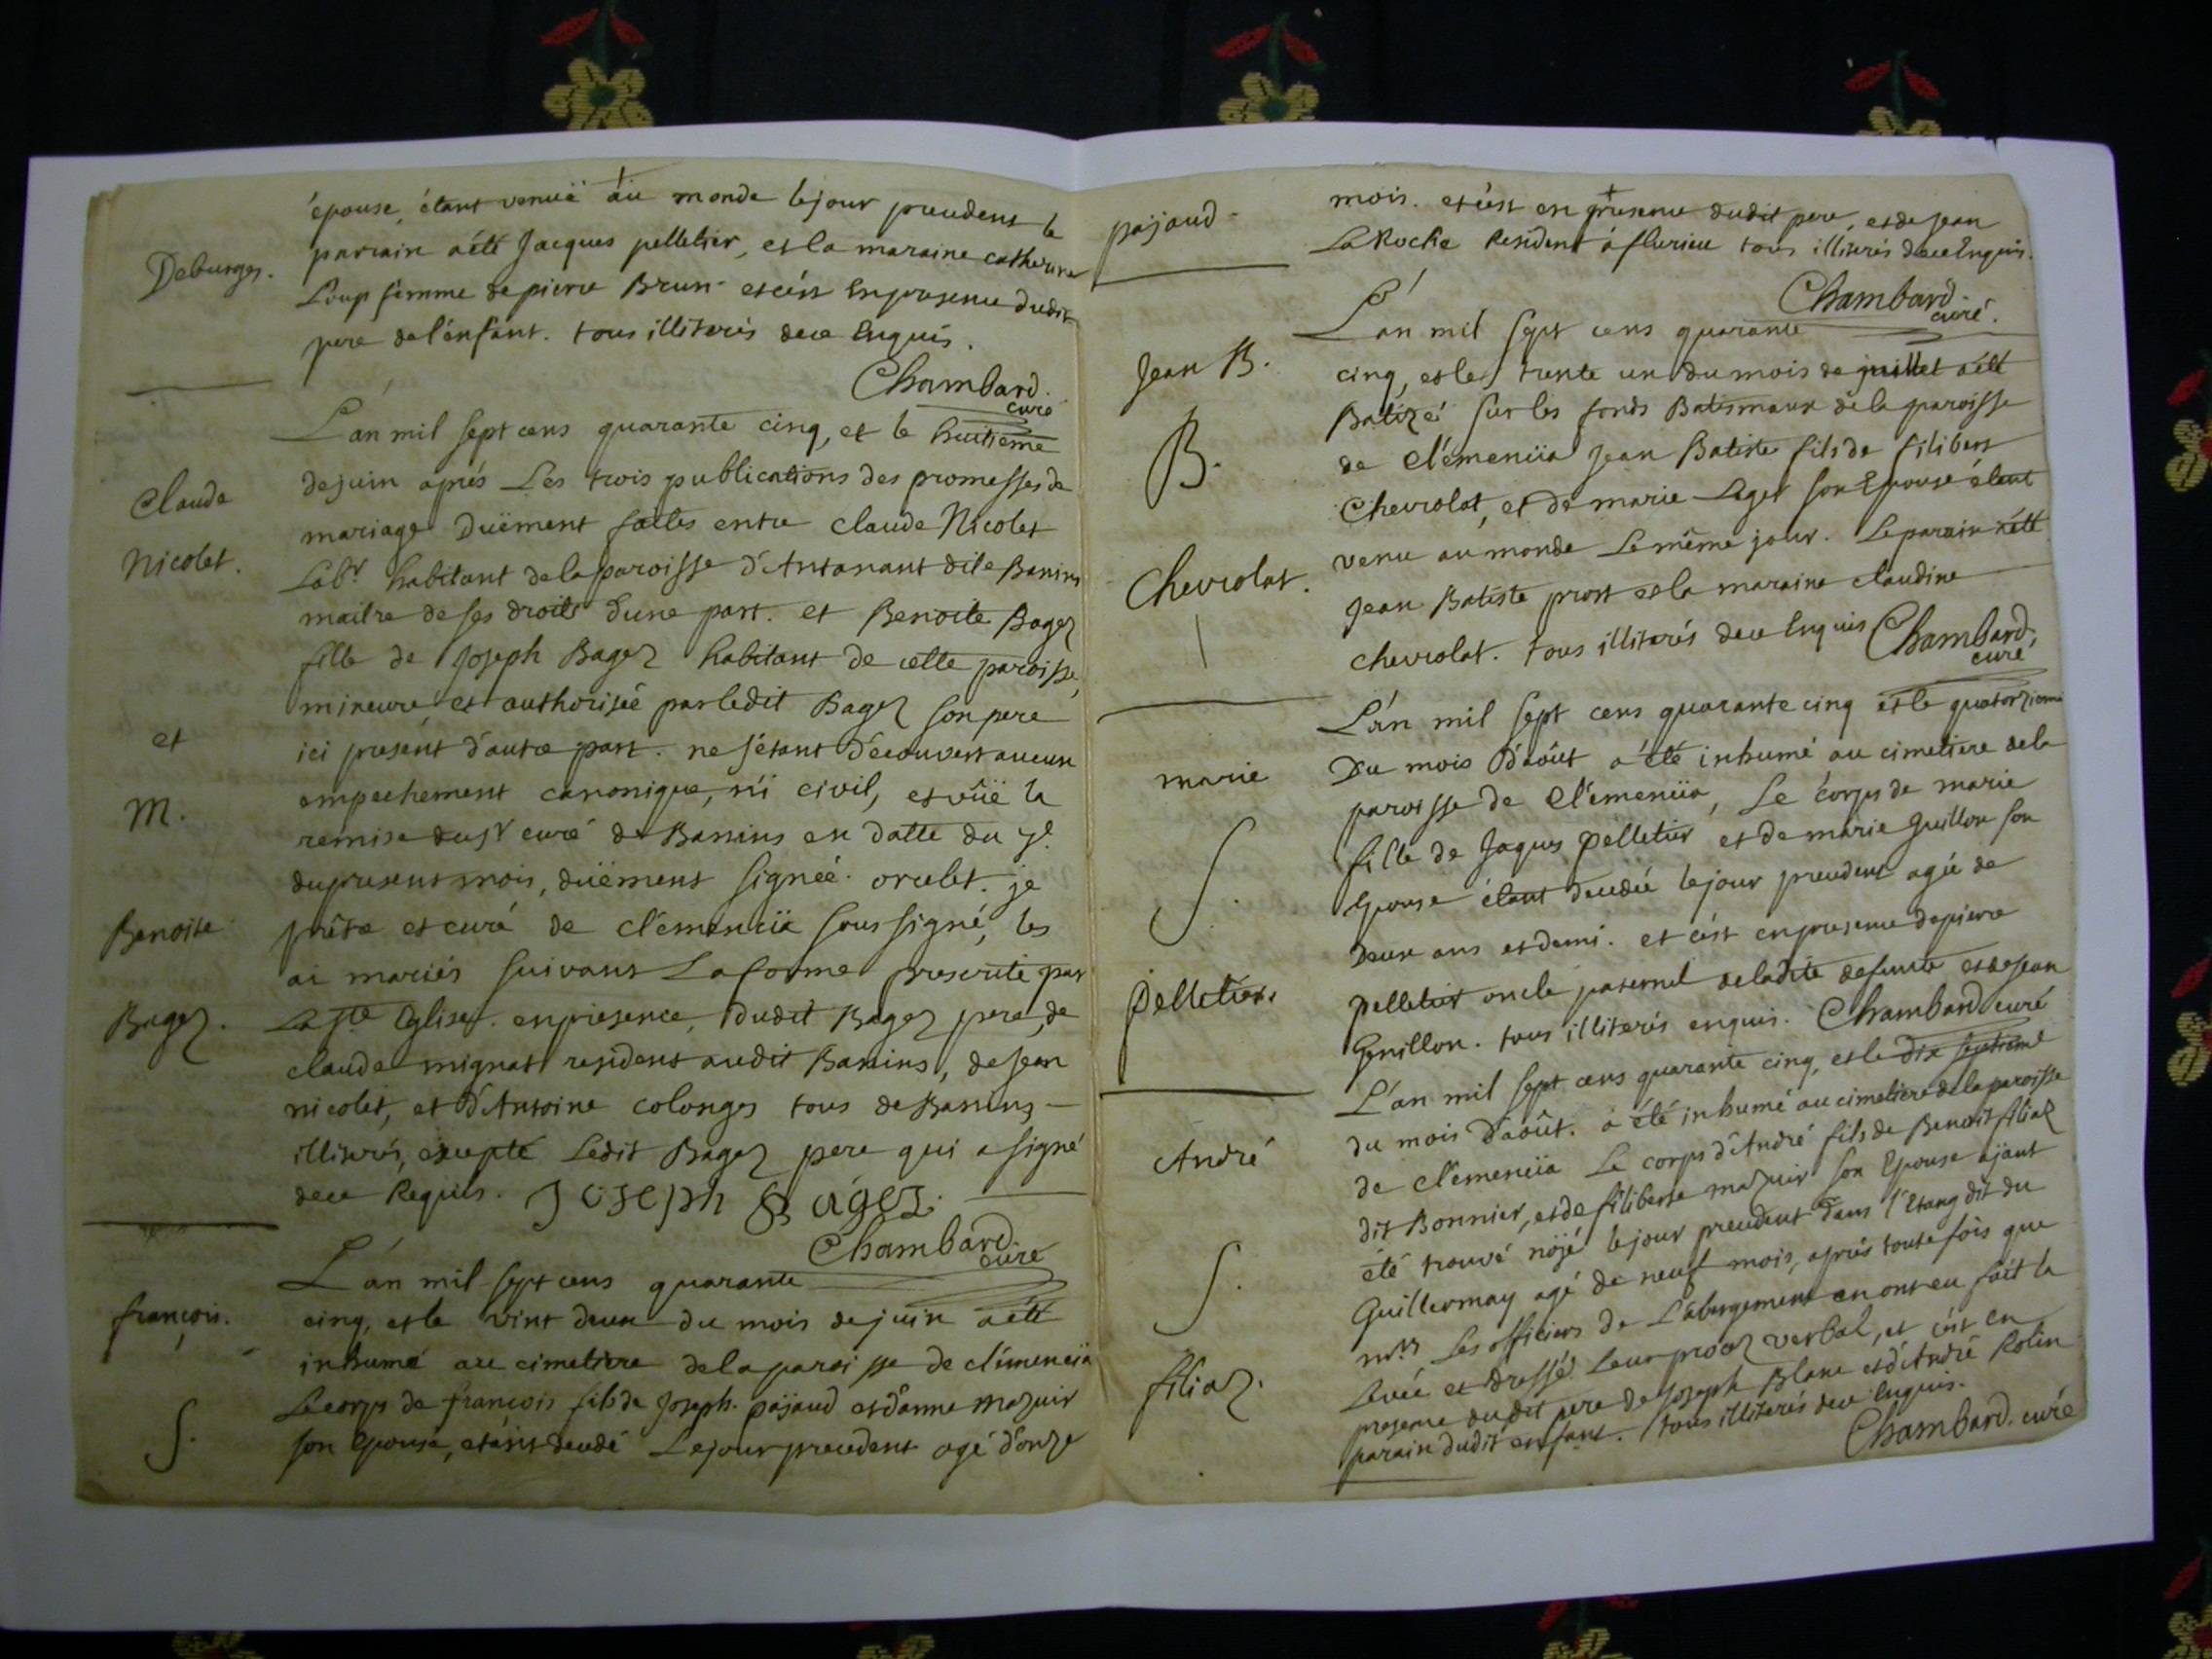 épouse, étant venuë au monde le jour precedent le
Deburges.
parrain a été Jacques pelletier, et la maraine catherine
Loup femme de pierre Brun et c'est en presence dudit
pere de l'enfant. tous illiterés de ce Enquis.
Chambard.
curé
L'an mil sept cens quarante cinq, et le huitieme
Claude
de juin aprés Les trois publications des promesses de
mariage Duëment faites entre claude Nicolet
Nicolet.
Labr habitant de la paroisse d'Antanant dite Banins
maitre de ses droits d'une part. et Benoite Bagez
fille de Joseph Bagez habitant de cette paroisse,
mineure et authorisée par ledit Bagez son pere
et
ici present d'autre part. ne s'étant découvert aucun
M.
empechement canonique, ni civil, et vûë la
remise du sr curé de Banins en datte du 7e
du present mois, duëment signée. orcelet. je
Benoite
prêtre et curé de clémenciä soussigné, les
ai mariés suivant La forme prescrite par
Bagez.
La ste Eglise. en presence, Dudit Bagez pere, de
claude mignat resident audit Banins, de jean
nicolet, et d'Antoine colonges tous de Banins
illiterés, excepté Ledit Bagez pere qui a signé
de ce Requis. Joseph Bagez.
Chambard.
curé
L'an mil sept cens quarante
françois.
cinq, et le vint deux du mois de juin a été
inhumé au cimetiere de la paroisse de clémenciä
Le corps de françois fils de Joseph. pajaud et d'anne mazuir
S.
son Epouse, étant decedé Le jour precedent agé d'onze
pajaud
mois. et c'est en presence dudit pere, et de jean
La Roche Resident à flurieu tous illiterés de ce Enquis.
Chambard.
curé.
L'an mil sept cens quarante
Jean B.
cinq, et le trente un du mois de juillet a été
Batizé sur les fonds Batismaux de la paroisse
B.
de Clémenciä Jean Batiste fils de filibert
Chevrolat, et de marie Laget son Epouse étant
venu au monde Le même jour. Le parain a été
Chevrolat.
Jean Batiste prost et la maraine claudine
chevrolat. tous illiterés de ce Enquis Chambard.
curé
L'an mil sept cens quarante cinq et le quatorzieme
marie
Du mois D'août a été inhumé au cimetiere de la
paroisse de Clémenciä, Le corps de marie
S.
fille de Jaques pelletier et de marie Guillon son
Epouse étant decedée le jour precedent agée de
Deux ans et demi. et c'est en presence de pierre
Pelletier.
pelletier oncle paternel de ladite defunte et de jean
Genillon. tous illiterés enquis. Chambard curé
L'an mil sept cens quarante cinq, et le dix septieme
du mois d'août. a été inhumé au cimetiere de la paroisse
André
de clémenciä Le corps d'André fils de Benoit filiaz
dit Bonnier, et de filiberte mazuir son Epouse ajant
été trouvé nöjé le jour precedent dans l'Etang dit du
S.
Guillermay agé de neuf mois, aprés toutefois que
mrs Les officiers de L'abergement en ont eu fait la
Levée et Dressés Leur procez verbal, et c'est en
filiaz.
presence dudit pere de Joseph Blanc et d'André Rolin
parain dudit enfant. tous illiterés de ce Enquis.
Chambard. curé